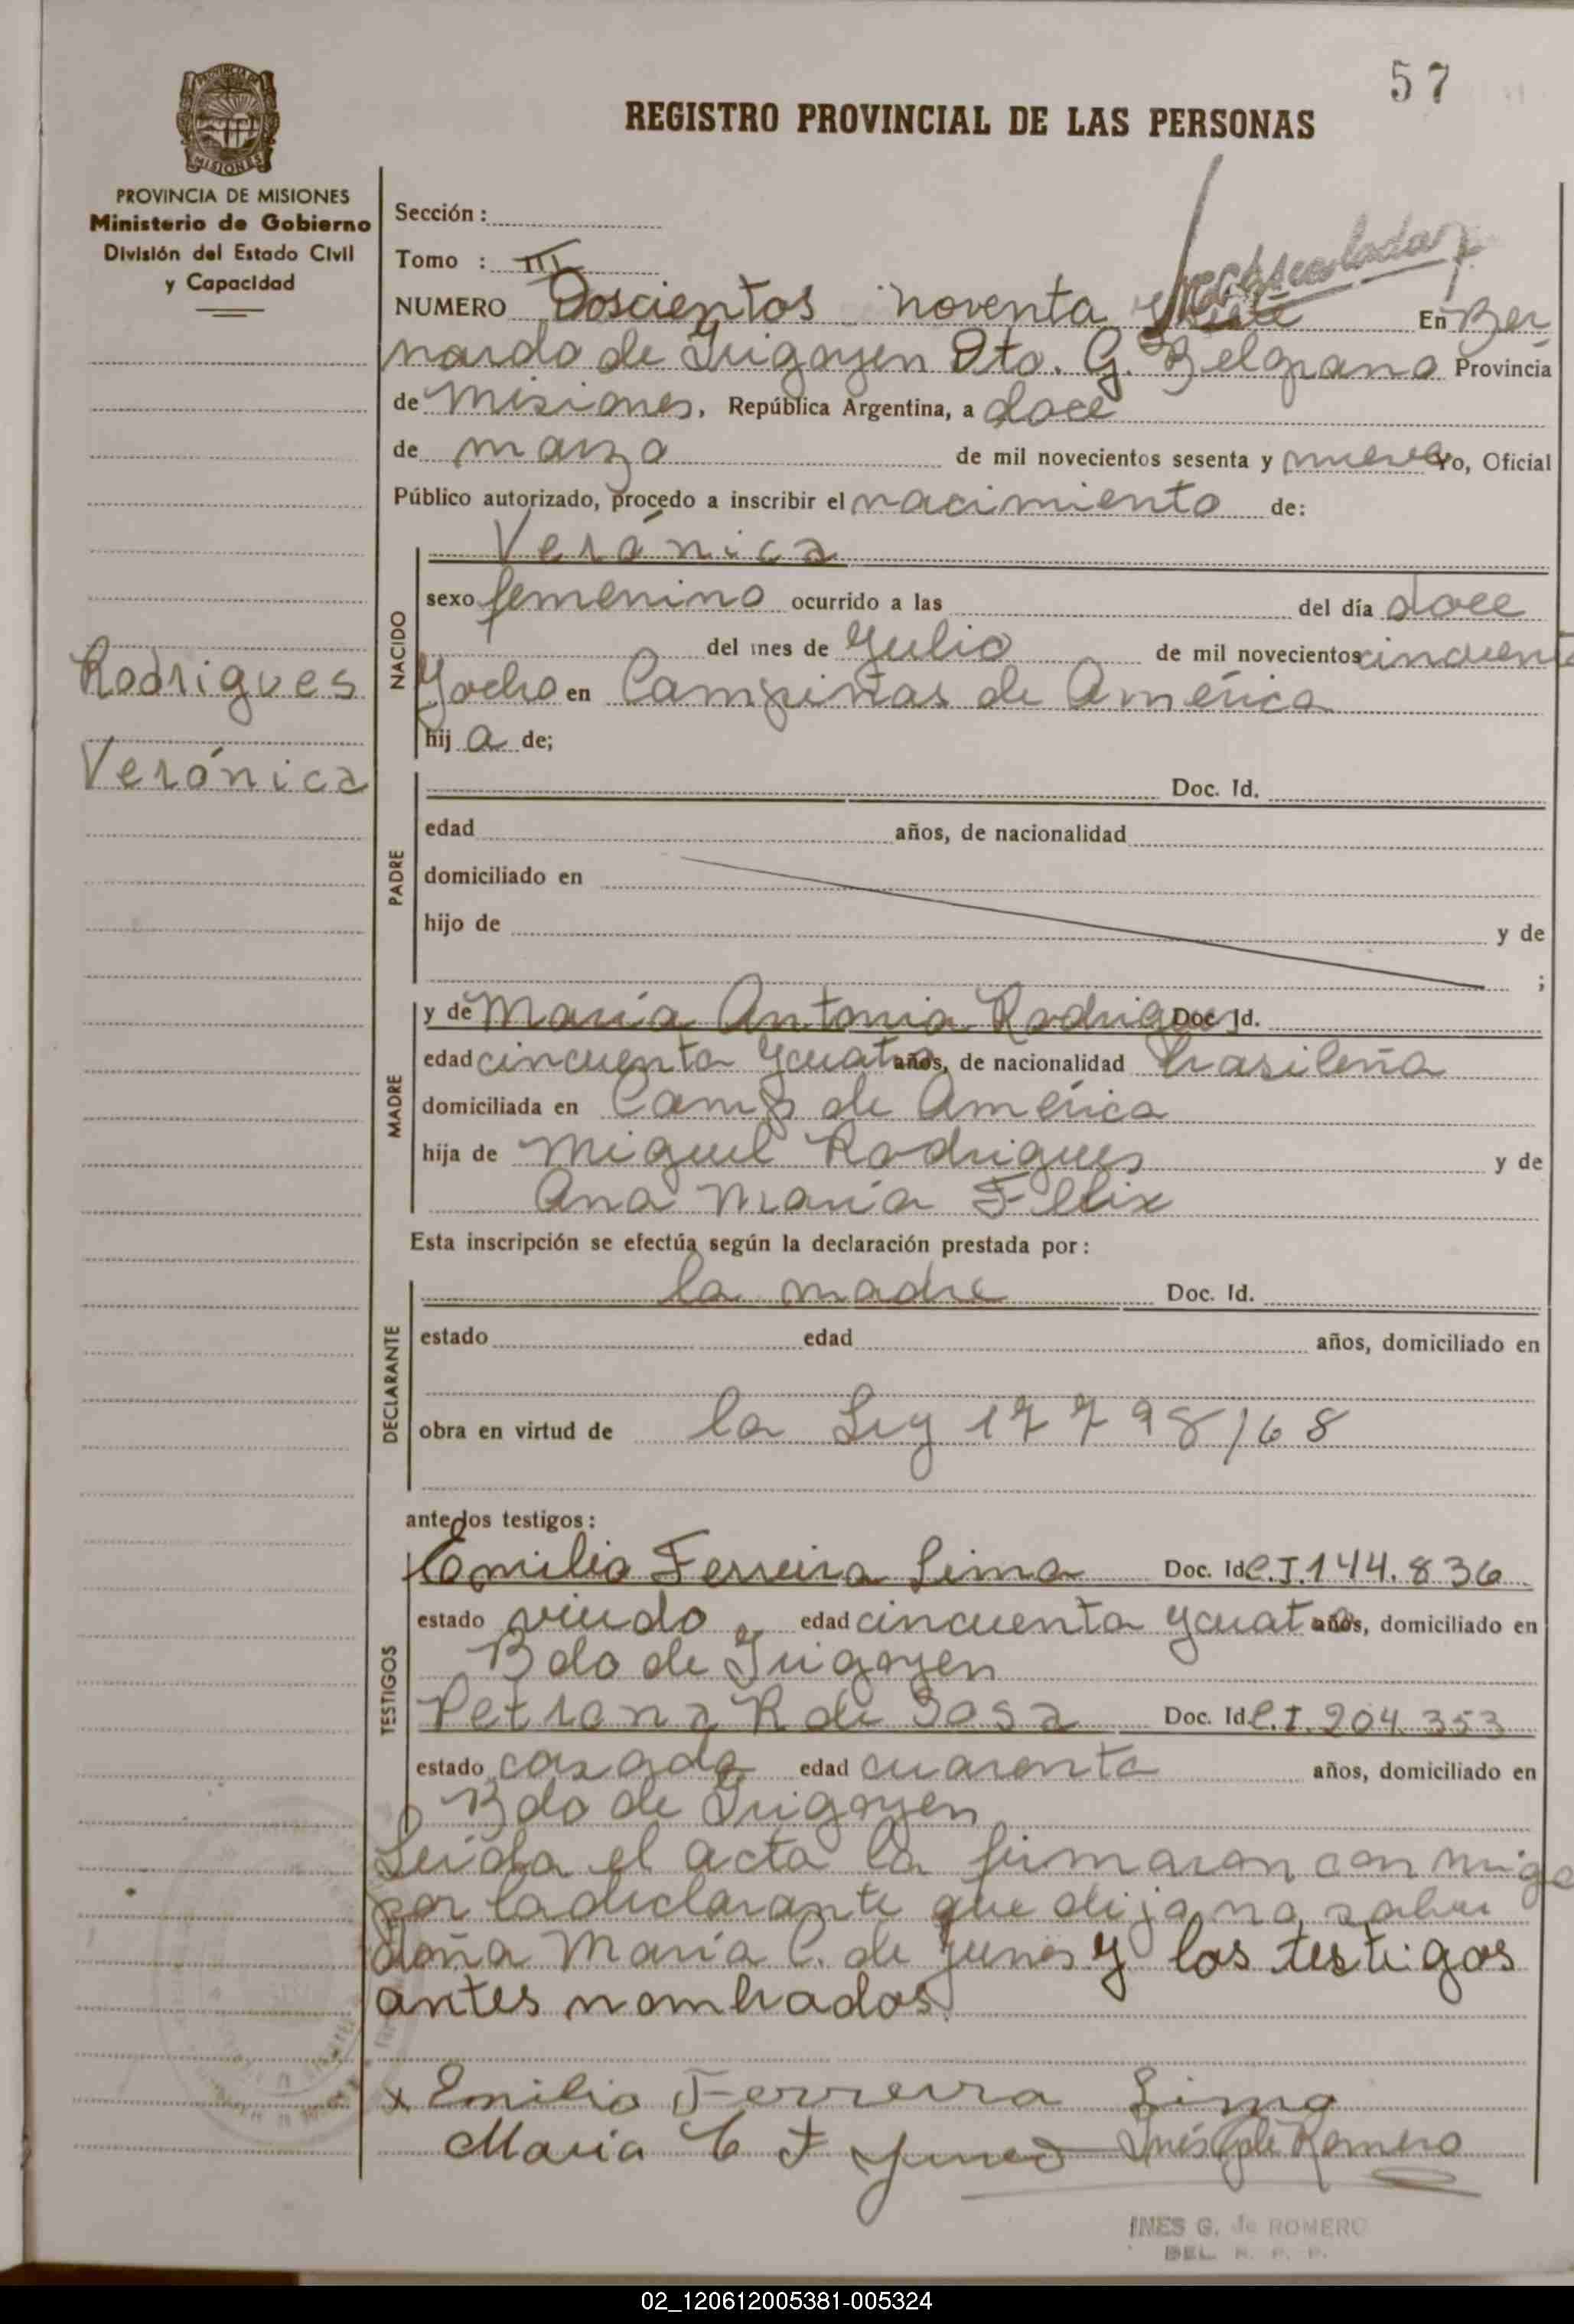 57
REGISTRO PROVINCIAL DE LAS PERSONAS
PROVINCIA DE MISIONES
MISIONES
PROVINCIA DE MISIONES
Ministerio de Gobierno
División del Estado Civil
y Capacidad
Rodrigues
Verónica
Sección :
Tomo : III
NUMERO Doscientos noventa y siete En Ber
nardo de Irigoyen Dto. G. Belgrano Provincia
de Misiones, República Argentina, a doce
de marzo de mil novecientos sesenta y nueve Yo, Oficial
Público autorizado, procedo a inscribir el nacimiento de:
NACIDO
Verónica
sexo femenino ocurrido a las del día doce
del mes de Julio de mil novecientos cincuenta
y ocho en Campiñas de América
hij a de;
PADRE
Doc. Id.
edad años, de nacionalidad
domiciliado en
hijo de y de
;
MADRE
y de María Antonia Rodrigues Doc. Id.
edad cincuenta y cuatro años, de nacionalidad brasileña
domiciliada en Camp de América
hija de Miguel Rodrigues y de
Ana María Felix
Esta inscripción se efectúa según la declaración prestada por :
DECLARANTE
la madre Doc. Id.
estado edad años, domiciliado en
obra en virtud de la Ley 17798/68
ante los testigos :
TESTIGOS
Emilio Ferreira Lima Doc. Id C.I. 144.836
estado viudo edad cincuenta y cuatro años, domiciliado en
Bdo de Irigoyen
Petrona R de Sosa Doc. Id C.I. 204.353
estado casada edad cuarenta años, domiciliado en
Bdo de Irigoyen
Leida el acta la firmaron conmigo
por la declarante que dija no saber
doña María C. de Junes y los testigos
antes nombrados.
x Emilio Ferreira Lima
Maria C F Junes Inés G de Romero
INES G. de ROMERO
DEL. R. P. P.
02_120612005381-005324